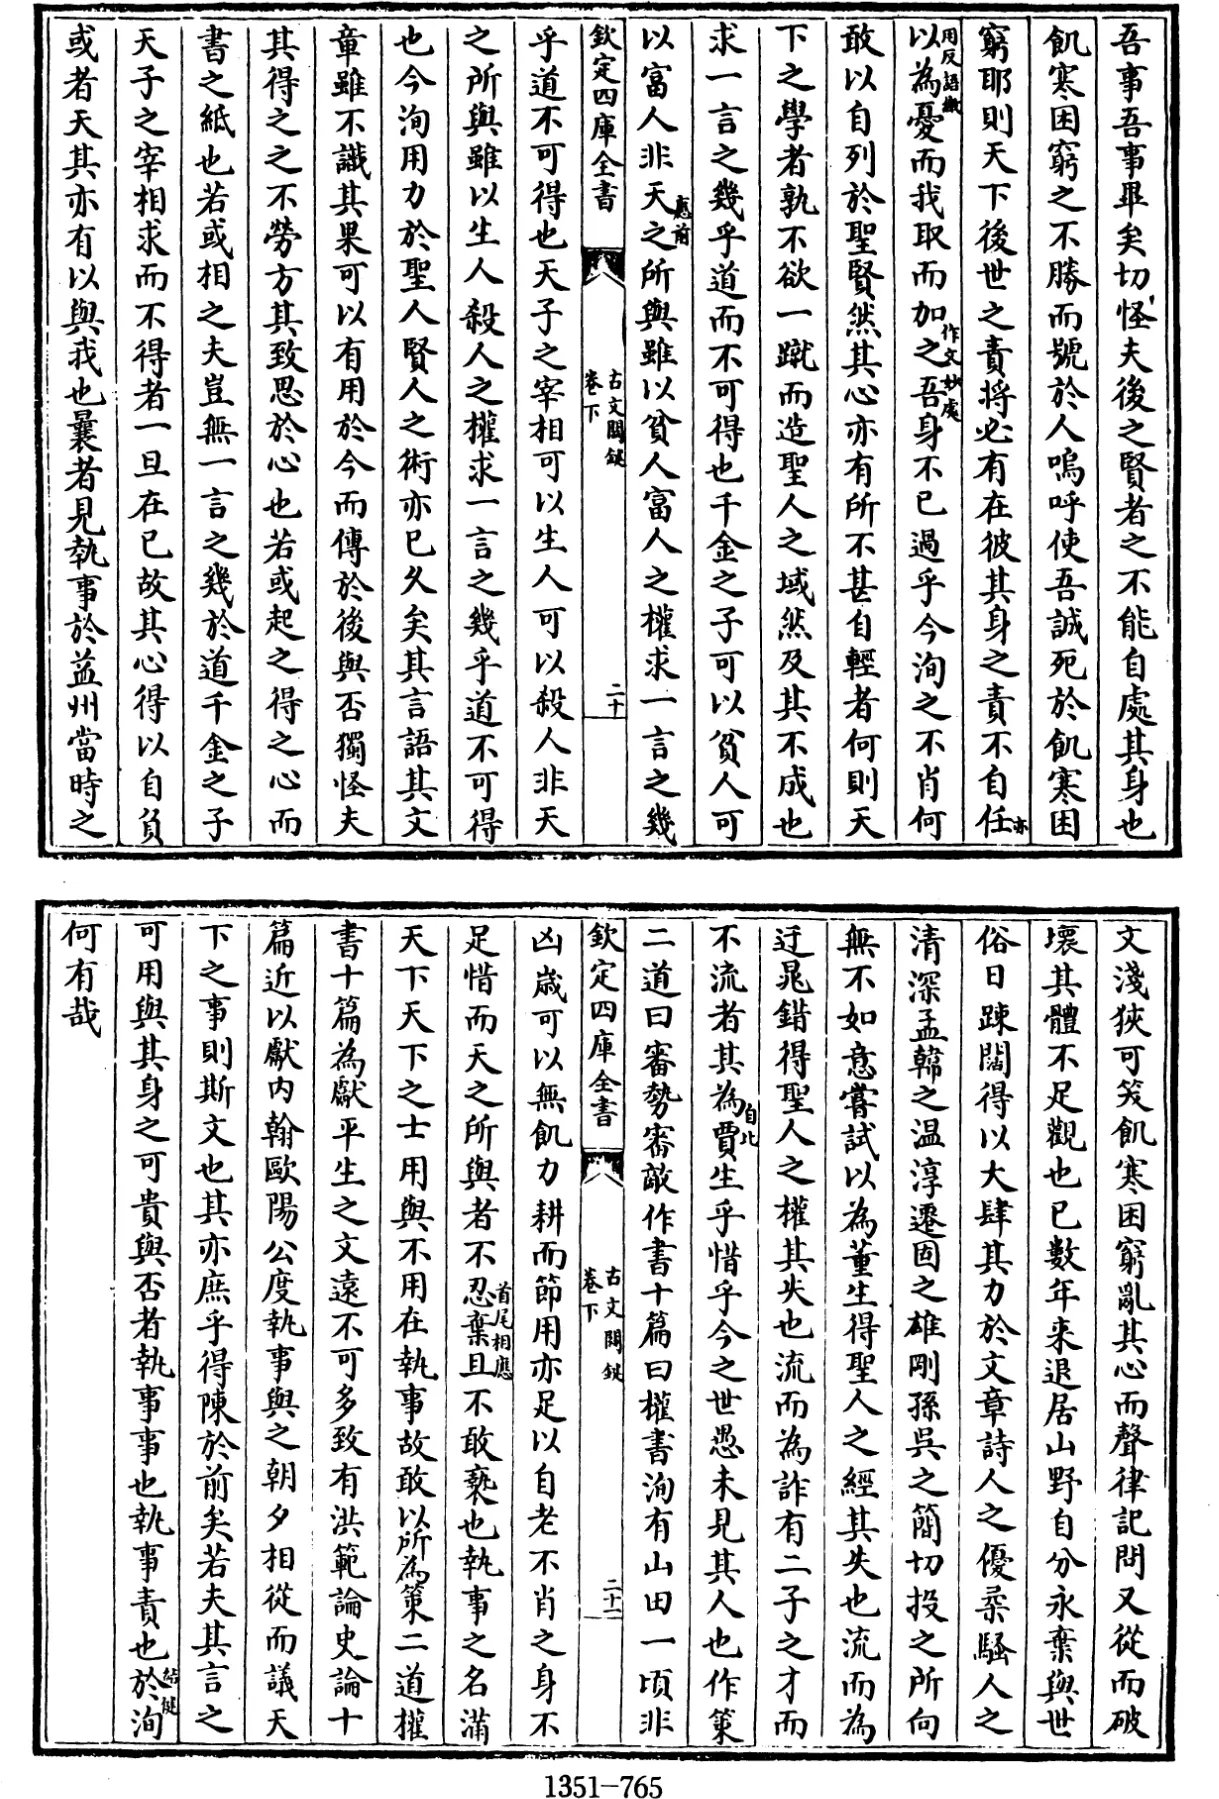 吾事吾事畢矣切怪夫後之賢者之不能自處其身也
飢寒困窮之不勝而號於人嗚呼使吾誠死於飢寒困
窮耶則天下後世之責將必有在彼其身之責不自任亦
用反語繳
以為憂而我取而加之吾身不已過乎今洵之不肖何
作文妙處
敢以自列於聖賢然其心亦有所不甚自輕者何則天
下之學者孰不欲一蹴而造聖人之域然及其不成也
求一言之幾乎道而不可得也千金之子可以貧人可
以富人非天之所與雖以貧人富人之權求一言之幾
應前
欽定四庫全書
古文關鍵
卷下
二十
乎道不可得也天子之宰相可以生人可以殺人非天
之所與雖以生人殺人之權求一言之幾乎道不可得
也今洵用力於聖人賢人之術亦已久矣其言語其文
章雖不識其果可以有用於今而傳於後與否獨怪夫
其得之之不勞方其致思於心也若或起之得之心而
書之紙也若或相之夫豈無一言之幾於道千金之子
天子之宰相求而不得者一旦在已故其心得以自負
或者天其亦有以與我也曩者見執事於益州當時之
文淺狹可笑飢寒困窮亂其心而聲律記問又從而破
壞其體不足觀也已數年來退居山野自分永棄與世
俗日踈闊得以大肆其力於文章詩人之優柔騷人之
清深孟韓之温淳遷固之雄剛孫吳之簡切投之所向
無不如意嘗試以為董生得聖人之經其失也流而為
迂晁錯得聖人之權其失也流而為詐有二子之才而
不流者其為賈生乎惜乎今之世愚未見其人也作策
自此
二道曰審勢審敵作書十篇曰權書洵有山田一頃非
欽定四庫全書
古文關鍵
卷下
二十一
凶歲可以無飢力耕而節用亦足以自老不肖之身不
足惜而天之所與者不忍棄且不敢褻也執事之名滿
首尾相應
天下天下之士用與不用在執事故敢以所為策二道權
書十篇為獻平生之文遠不可多致有洪範論史論十
篇近以獻内翰歐陽公度執事與之朝夕相從而議天
下之事則斯文也其亦庶乎得陳於前矣若夫其言之
可用與其身之可貴與否者執事事也執事責也於洵
結健
何有哉
1351-765